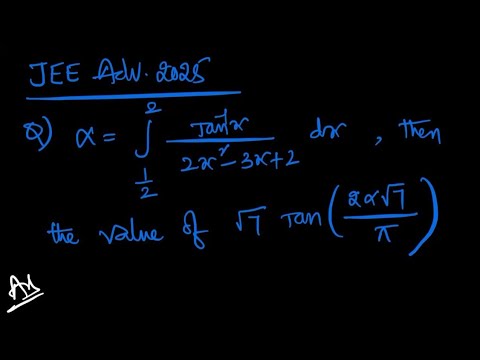 JEE Adv. 2025
Q) α = ∫_{1/2}^{2} Tan⁻¹x / (2x² - 3x + 2) dx , then
the value of √7 Tan(2α√7 / π)